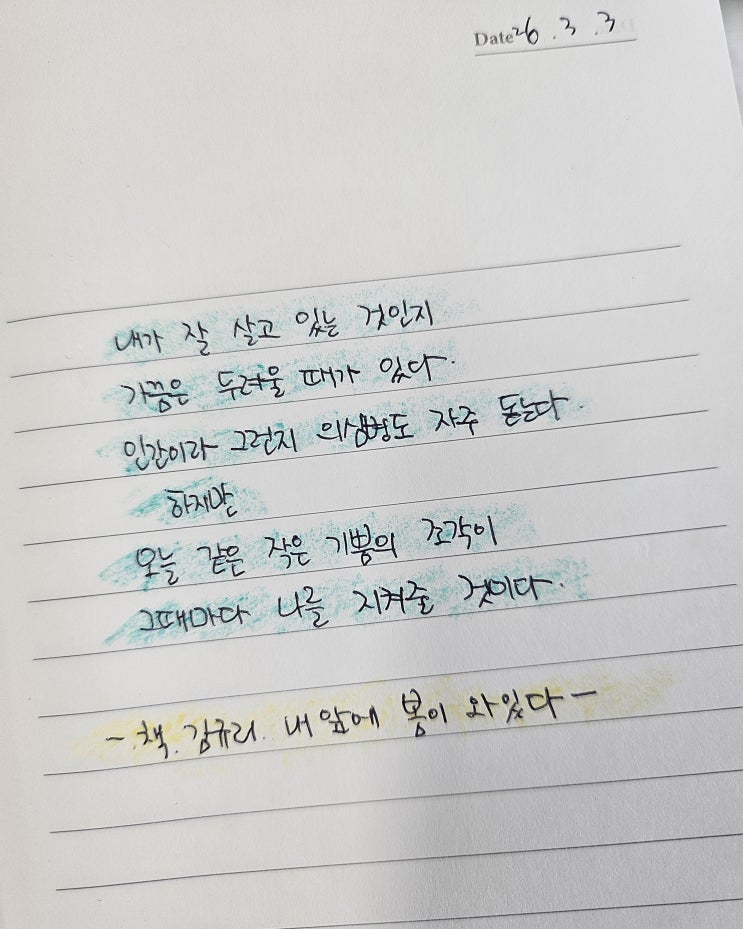 Date 26. 3. 3
내가 잘 살고 있는 것인지
가끔은 두려울 때가 있다.
인간이라 그런지 의심병도 자주 돋는다.
하지만
오늘 같은 작은 기쁨의 조각이
그때마다 나를 지켜줄 것이다.
- 책. 김규리. 내 앞에 봄이 와있다 -